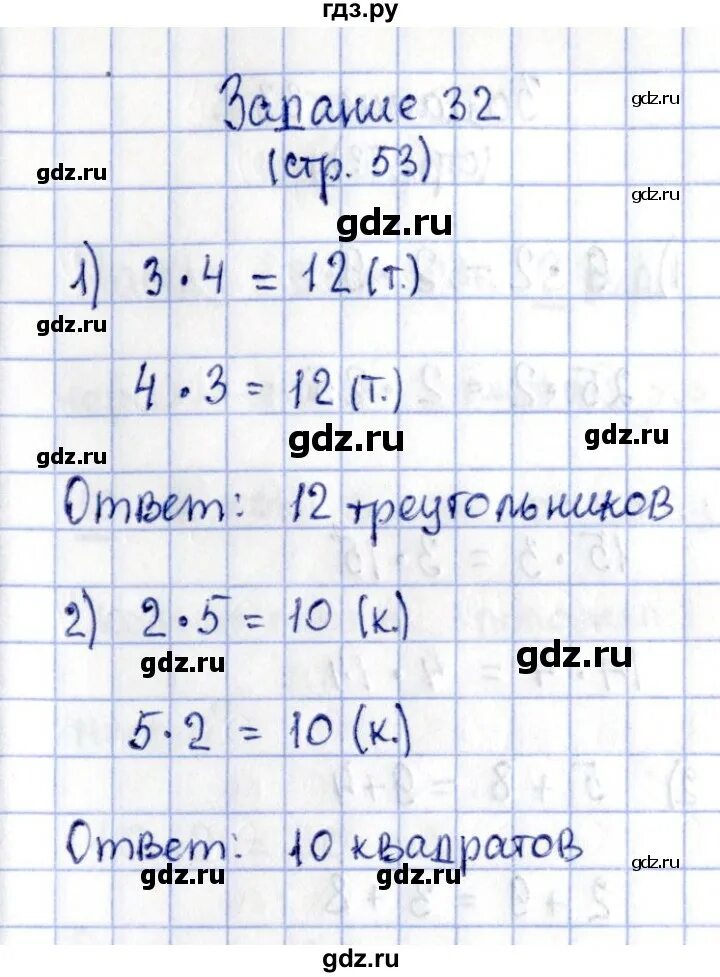 гдз.ру
Задание 32
gdz.ru
(стр. 53)
gdz.ru
gdz.ru
gdz.ru
1) 3 · 4 = 12 (т.)
gdz.ru
gdz.ru
4 · 3 = 12 (т.)
gdz.ru
gdz.ru
gdz.ru
Ответ: 12 треугольников
2) 2 · 5 = 10 (к.)
gdz.ru
gdz.ru
5 · 2 = 10 (к.)
Ответ: 10 квадратов
gdz.ru
gdz.ru
gdz.ru
gdz.ru